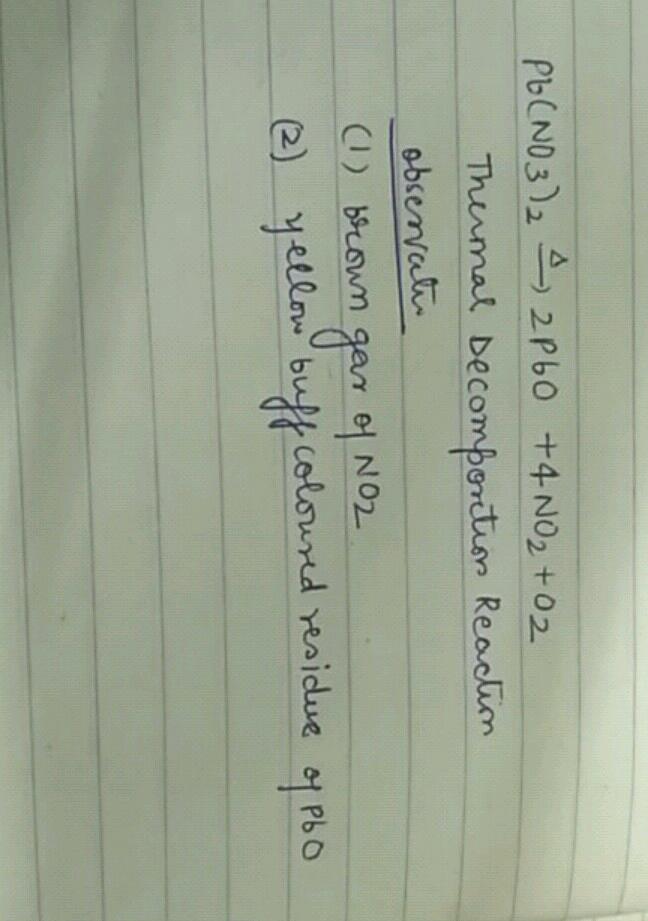 Pb(NO3)2 Δ→ 2PbO + 4NO2 + O2
Thermal Decomposition Reaction
observatn
(1) brown gas of NO2
(2) yellow buff coloured residue of PbO